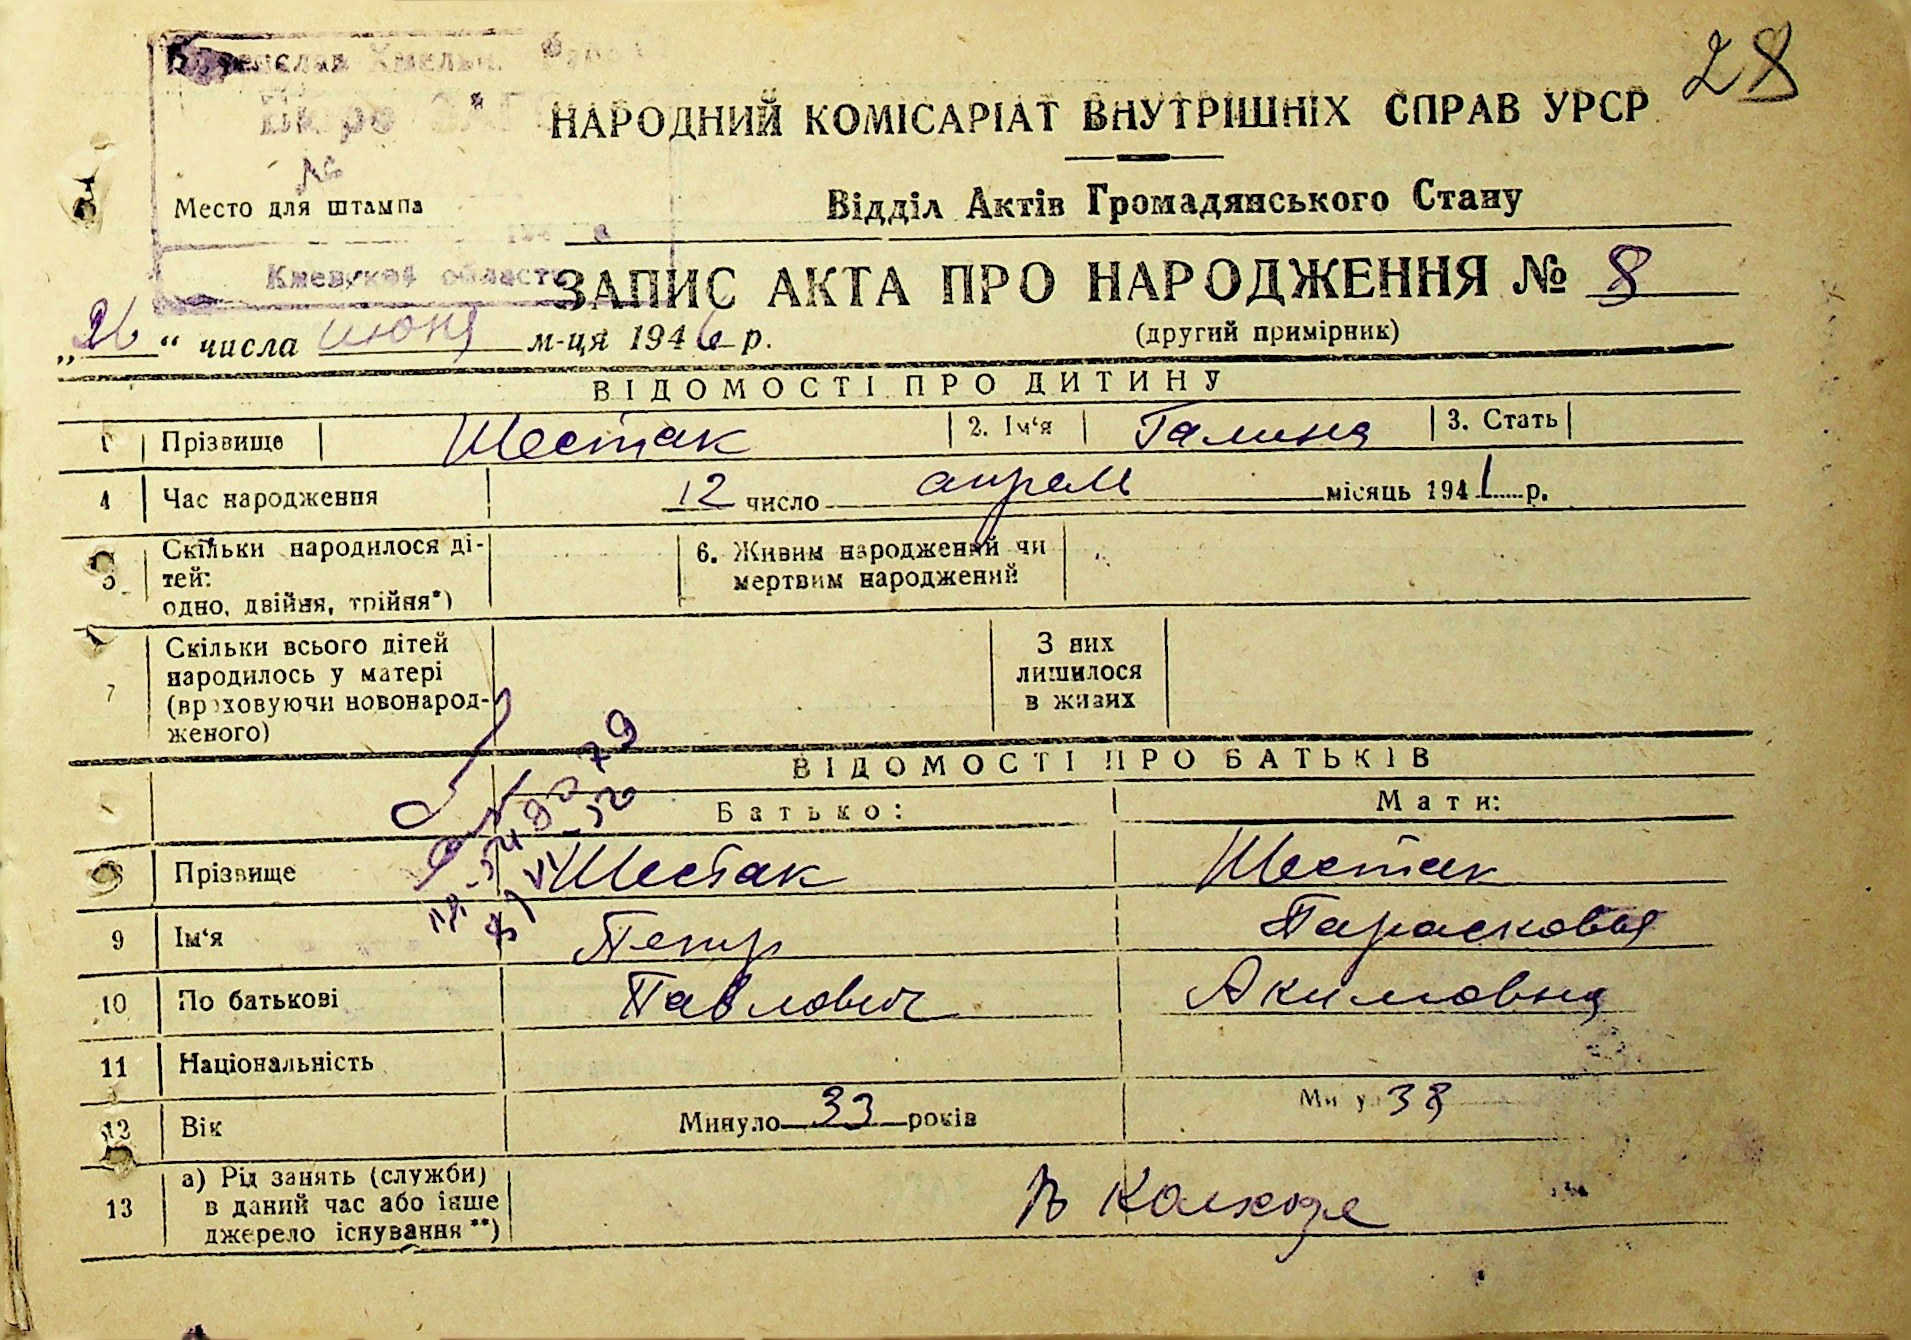 28
НАРОДНИЙ КОМІСАРІАТ ВНУТРІШНІХ СПРАВ УРСР
Место для штампа
Відділ Актів Громадянського Стану
Киевской области
ЗАПИС АКТА ПРО НАРОДЖЕННЯ № 8
(другий примірник)
„26“ числа июня м-ця 1946 р.
ВІДОМОСТІ ПРО ДИТИНУ
1 Прізвище Шестак 2. Ім'я Галина 3. Стать
4 Час народження 12 число апреля місяць 1941 р.
5 Скільки народилося ді-
тей:
одно, двійня, трійня*)
6. Живим народжений чи
мертвим народжений
7 Скільки всього дітей
народилось у матері
(враховуючи новонарод-
женого)
З них
лишилося
в живих
ВІДОМОСТІ ПРО БАТЬКІВ
Батько: Мати:
8 Прізвище Шестак Шестак
9 Ім'я Петр Парасковья
10 По батькові Павлович Акимовна
11 Національність
12 Вік Минуло 33 років 38
13 а) Рід занять (служби)
в даний час або інше
джерело існування**)
В колхозе